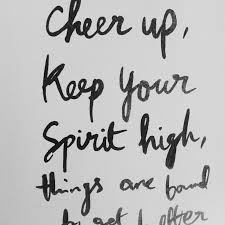 Cheer up,
Keep Your
Spirit high,
things are bound
to get better